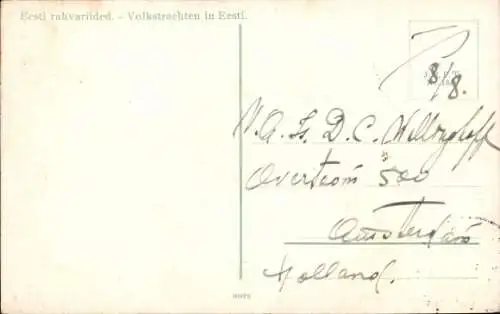 Eesti rahvariided. - Volkstrachten in Eesti.
8/8.
D. C. Wellinghoff
Overtoom 500
Amsterdam
Holland.